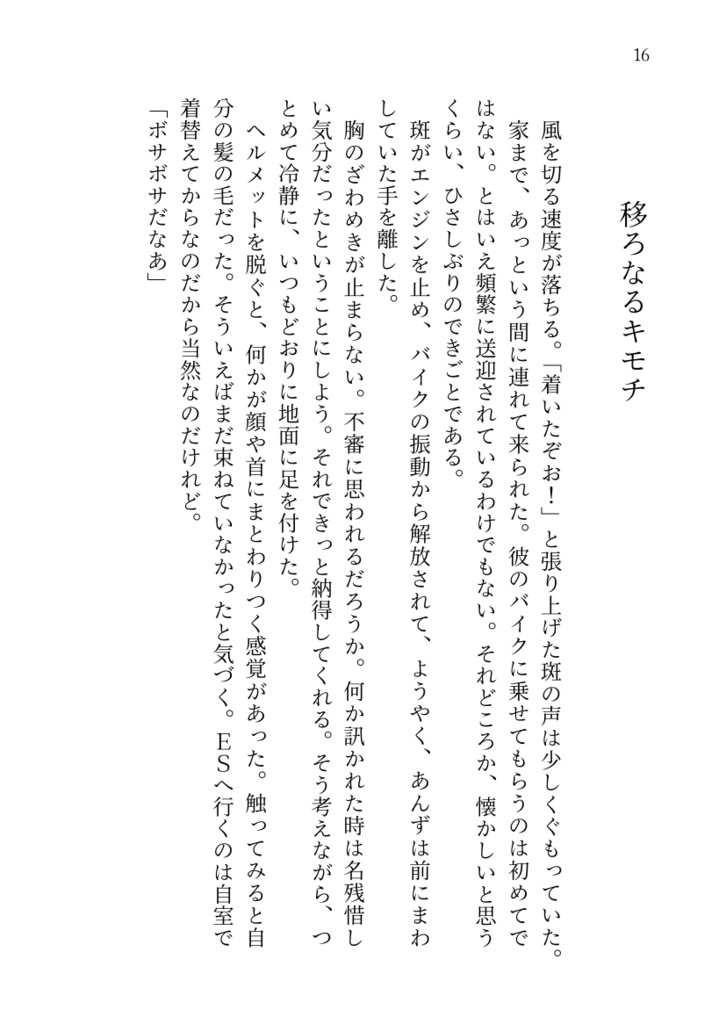 16
移ろなるキモチ
風を切る速度が落ちる。「着いたぞお！」と張り上げた斑の声は少しくぐもっていた。
家まで、あっという間に連れて来られた。彼のバイクに乗せてもらうのは初めてで
はない。とはいえ頻繁に送迎されているわけでもない。それどころか、懐かしいと思う
くらい、ひさしぶりのできごとである。
斑がエンジンを止め、バイクの振動から解放されて、ようやく、あんずは前にまわ
していた手を離した。
胸のざわめきが止まらない。不審に思われるだろうか。何か訊かれた時は名残惜し
い気分だったということにしよう。それできっと納得してくれる。そう考えながら、つ
とめて冷静に、いつもどおりに地面に足を付けた。
ヘルメットを脱ぐと、何かが顔や首にまとわりつく感覚があった。触ってみると自
分の髪の毛だった。そういえばまだ束ねていなかったと気づく。ＥＳへ行くのは自室で
着替えてからなのだから当然なのだけれど。
「ボサボサだなあ」